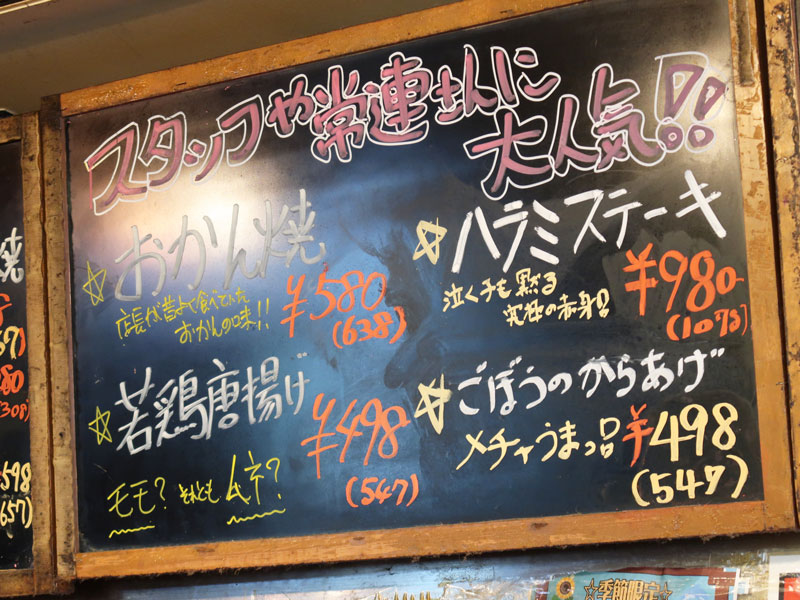 スタッフや常連さんに
大人気!!
おかん焼
店長が昔よく食べていた
おかんの味!!
¥580
(638)
ハラミステーキ
泣く子も黙る
究極の赤身!!
¥980
(1078)
若鶏唐揚げ
モモ?それともムネ?
¥498
(547)
ごぼうのからあげ
メチャうまっ品
¥498
(547)
焼
598
657)
☆季節限定☆